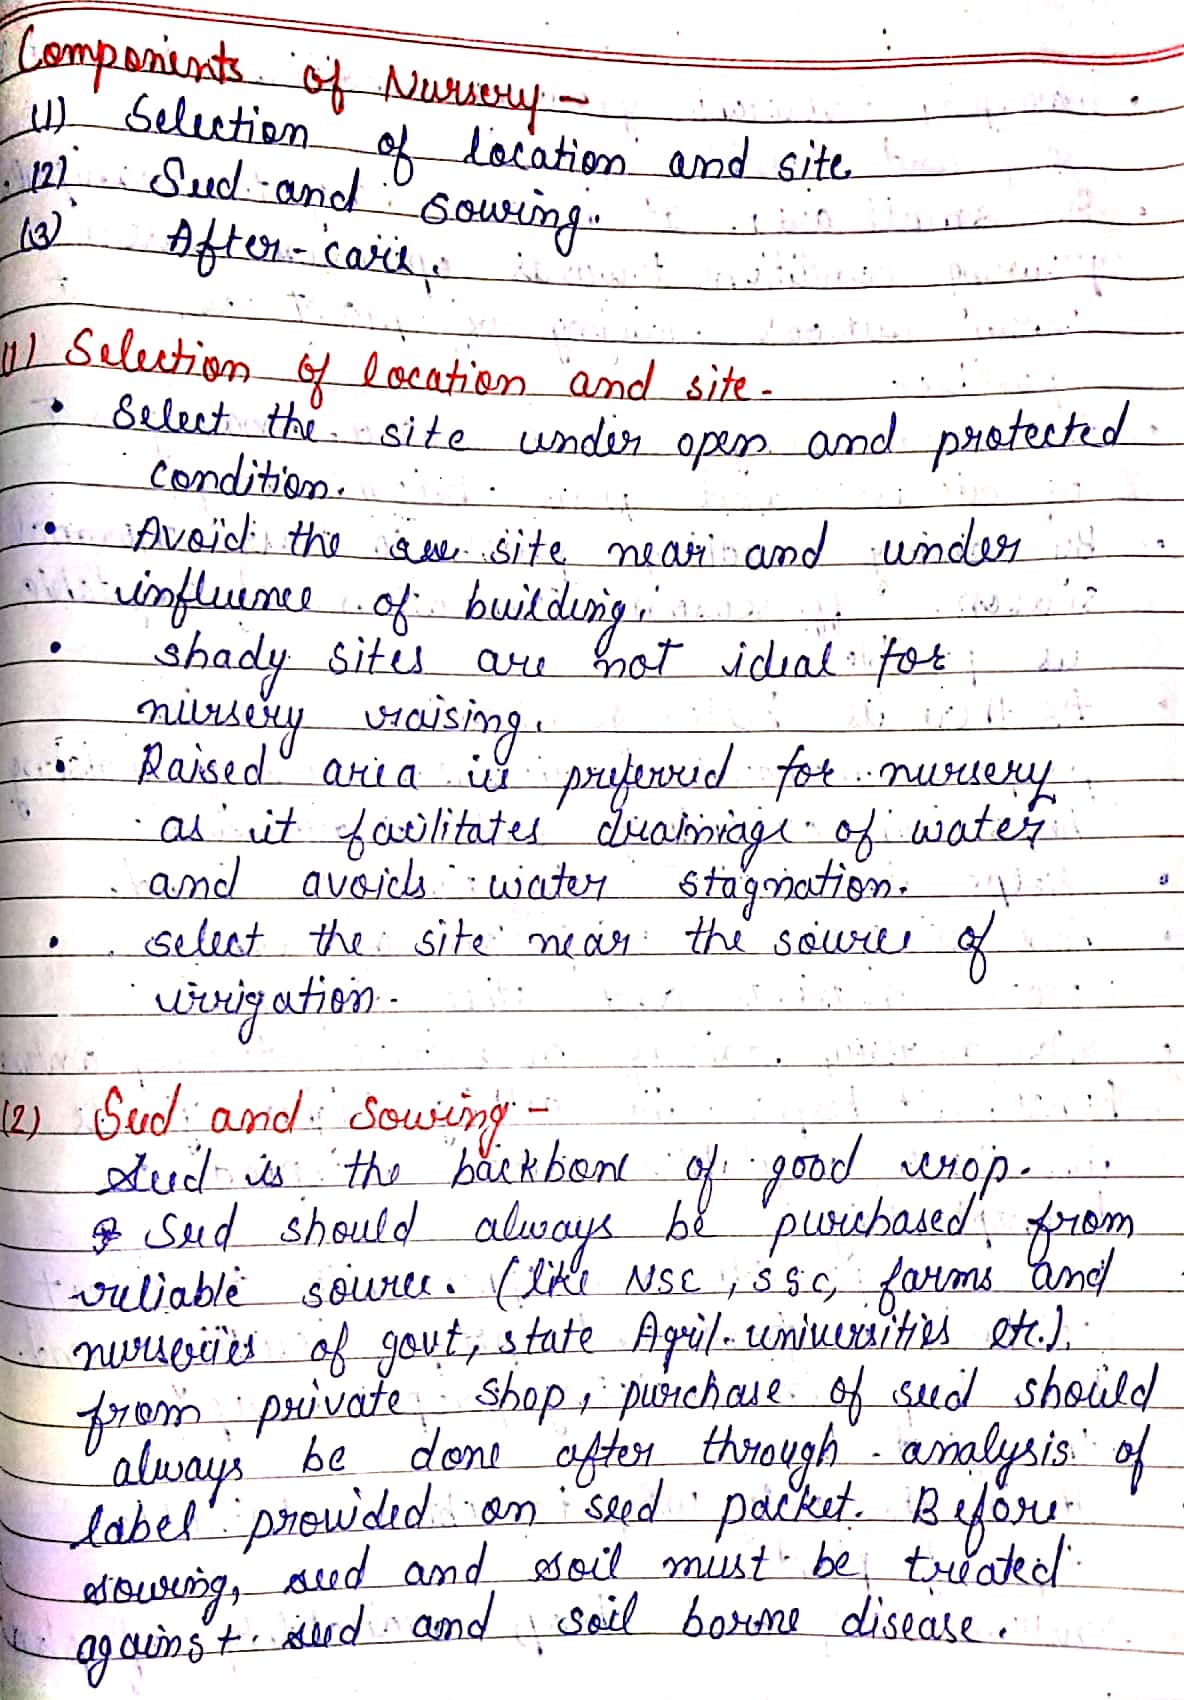 Components of Nursery -
(1) Selection of location and site
(2) Seed and Sowing.
(3) After-care.
(1) Selection of location and site -
• Select the site under open and protected
condition.
• Avoid the site near and under
influence of building.
• shady sites are not ideal for
nursery raising.
• Raised area is preferred for nursery
as it facilitates drainage of water
and avoids water stagnation.
• select the site near the source of
irrigation -
(2) Seed and Sowing -
Seed is the backbone of good crop.
Seed should always be purchased from
reliable source. (like NSC, SSC, farms and
nurseries of govt, state Agril. universities etc.).
from private shop, purchase of seed should
always be done after through analysis of
label provided on seed packet. Before
sowing, seed and soil must be treated
against seed and soil borne disease.